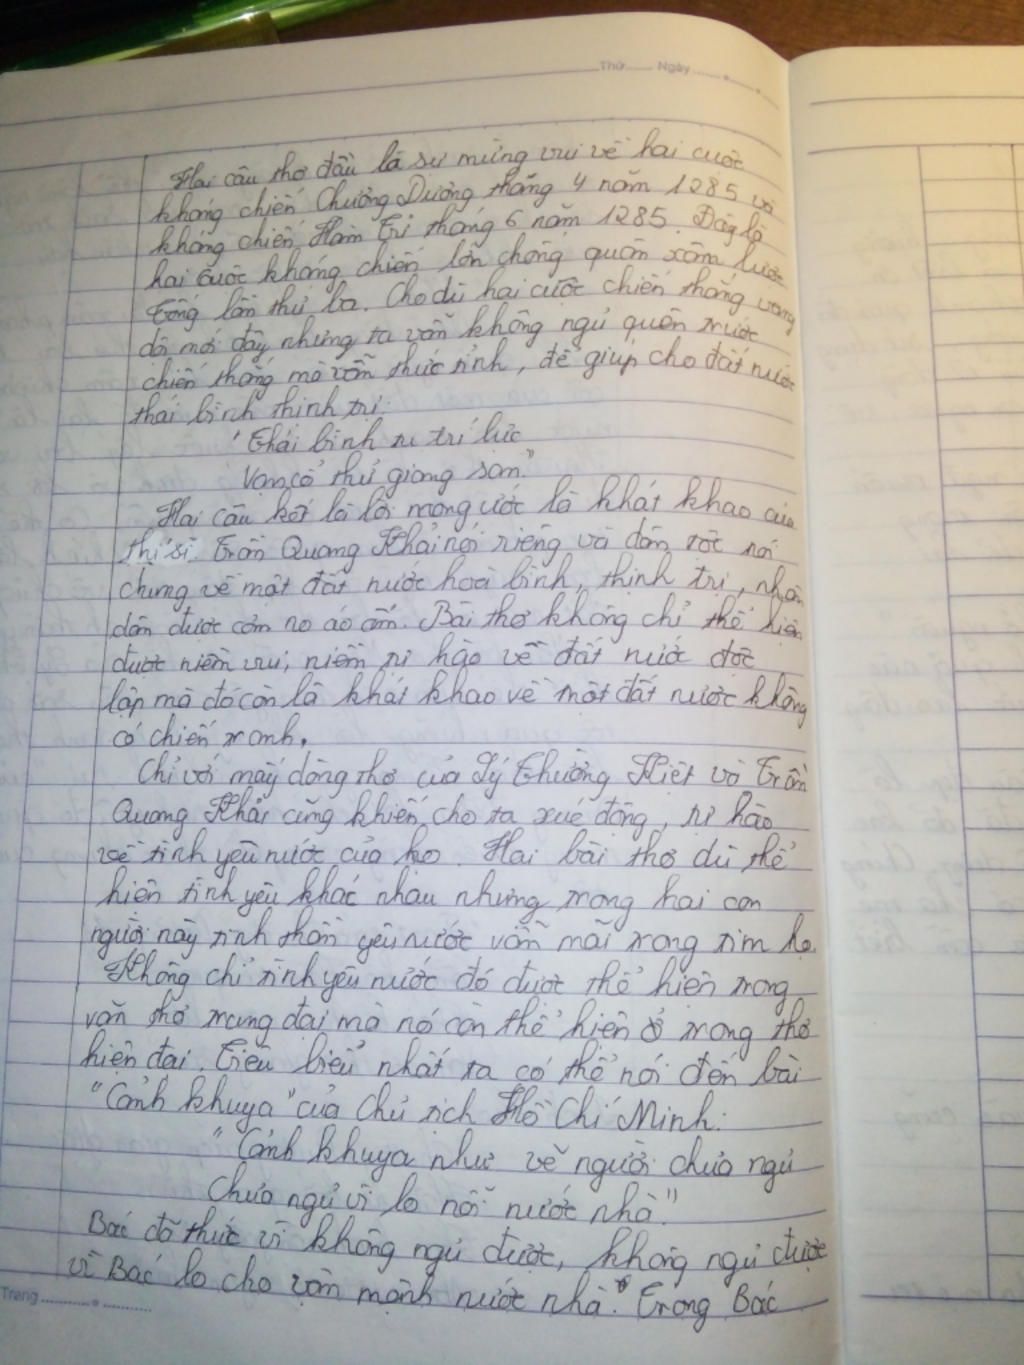 Thứ ...... Ngày ......
Hai câu thơ đầu là sự mừng vui về hai cuộc
kháng chiến Chương Dương tháng 4 năm 1285 và
kháng chiến Hàm Tử tháng 6 năm 1285. Đây là
hai cuộc kháng chiến lớn chống quân xâm lược
Tống lần thứ ba. Cho dù hai cuộc chiến thắng vang
dội mới đây nhưng ta vẫn không ngủ quên trước
chiến thắng mà vẫn thức tỉnh, để giúp cho đất nước
thái bình thịnh trị:
"Thái bình tu trí lực
Vạn cổ thử giang san."
Hai câu kết là lời mong ước là khát khao của
thi sĩ Trần Quang Khải nói riêng và dân tộc nói
chung về một đất nước hoà bình, thịnh trị, nhân
dân được cơm no áo ấm. Bài thơ không chỉ thể hiện
được niềm vui, niềm tự hào về đất nước độc
lập mà đó còn là khát khao về một đất nước không
có chiến tranh.
Chỉ với mấy dòng thơ của Lý Thường Kiệt và Trần
Quang Khải cũng khiến cho ta xúc động, tự hào
về tình yêu nước của họ. Hai bài thơ dù thể
hiện tình yêu khác nhau nhưng trong hai con
người này tinh thần yêu nước vẫn mãi trong tim họ.
Không chỉ tình yêu nước đó được thể hiện trong
văn thơ trung đại mà nó còn thể hiện ở trong thơ
hiện đại. Tiêu biểu nhất ta có thể nói đến bài
"Cảnh khuya" của Chủ tịch Hồ Chí Minh:
"Cảnh khuya như vẽ người chưa ngủ
Chưa ngủ vì lo nỗi nước nhà."
Bác đã thức vì không ngủ được, không ngủ được
vì Bác lo cho vận mệnh nước nhà. Trong Bác
Trang ......